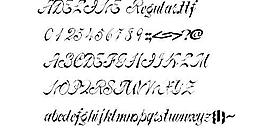 ADELINE Regular.ttf
0123456789:;<=>?@
ABCDEFGHIJKLM
NOPQRSTUVWXYZ
abcdefghijklmnopqrstuvwxyz{|}~